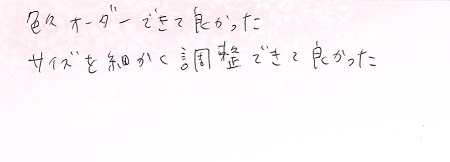 色々オーダーできて良かった
サイズを細かく調整できて良かった